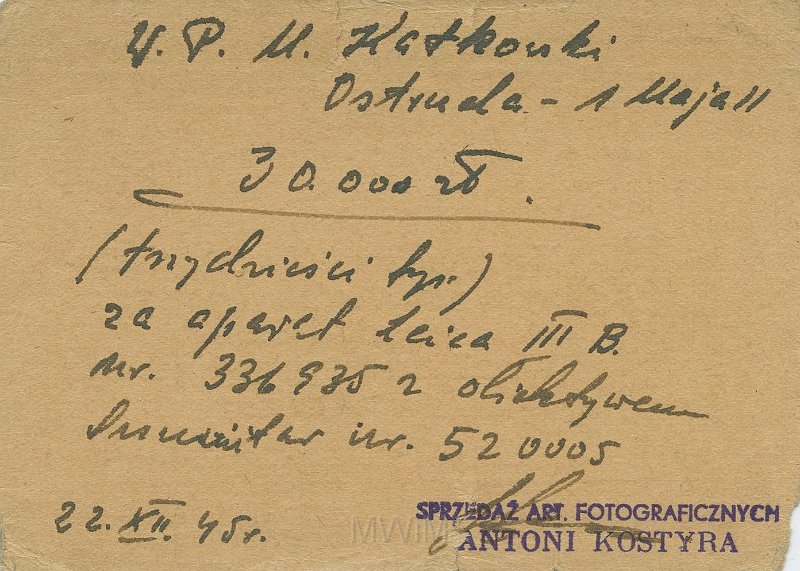 W. P. M. Katkowski
Ostruda - 1 Maja 11
30.000 zł.
(trzydzieści tys.)
za aparat leica III B.
nr. 336935 z obiektywem
Summitar nr. 520005
22. XII. 45 r.
SPRZEDAŻ ART. FOTOGRAFICZNYCH
ANTONI KOSTYRA